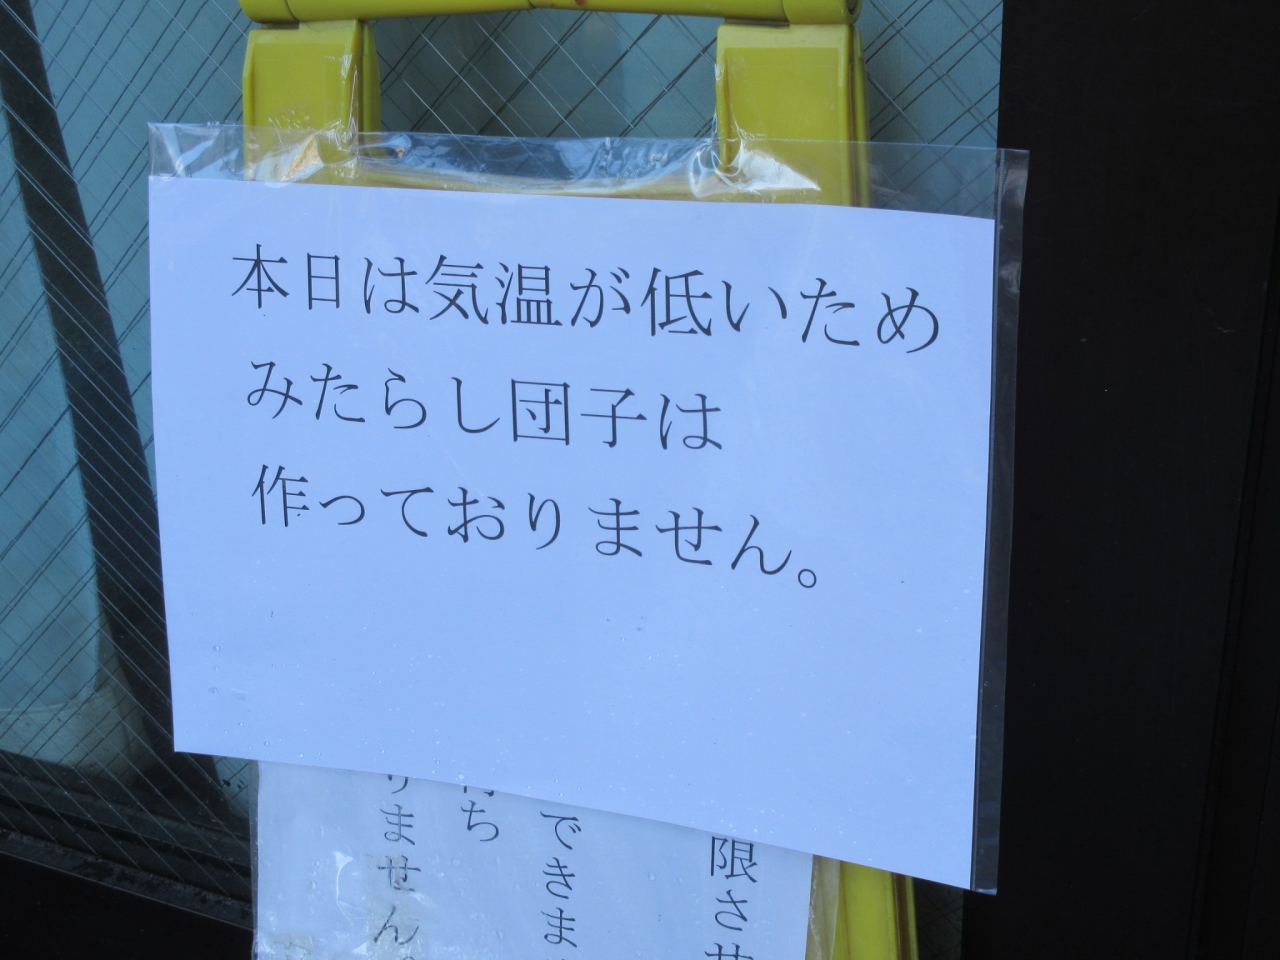 本日は気温が低いため
みたらし団子は
作っておりません。
限させ
できま
待ち
りません。